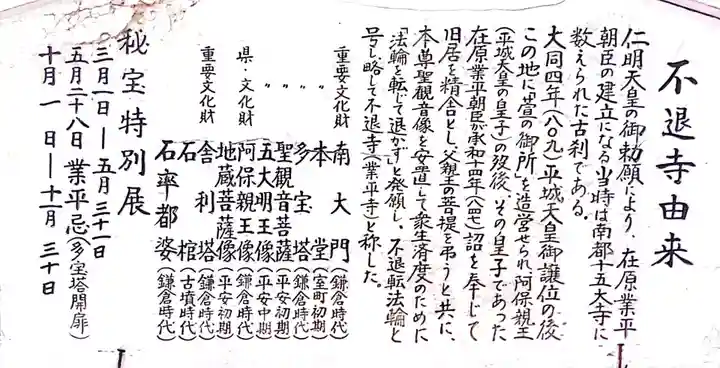 不退寺由来
仁明天皇の御勅願により、在原業平
朝臣の建立になる当時は南都十五大寺に
数えられた古刹である。
大同四年(八〇九)平城天皇御譲位の後
この地に「萱の御所」を造営せられ、阿保親王
(平城天皇の皇子)の歿後、その皇子であった
在原業平朝臣が承和十四年(八四七)詔を奉じて
旧居を精舎とし、父親王の菩提を弔うと共に、
本尊聖観音像を安置して衆生済度のために
「法輪を転じて退かず」と発願し、不退転法輪と
号し略して不退寺(業平寺)と称した。
重要文化財 南大門(鎌倉時代)
〃 本堂(室町初期)
〃 多宝塔(鎌倉時代)
〃 聖観音菩薩(平安初期)
〃 五大明王像(平安中期)
県・文化財 阿保親王像(鎌倉時代)
地蔵菩薩像(平安初期)
重要文化財 舎利塔(鎌倉時代)
石棺(古墳時代)
石率都婆(鎌倉時代)
秘宝特別展
三月一日―五月三十一日
五月二十八日 業平忌(多宝塔開扉)
十月一日―十一月三十日